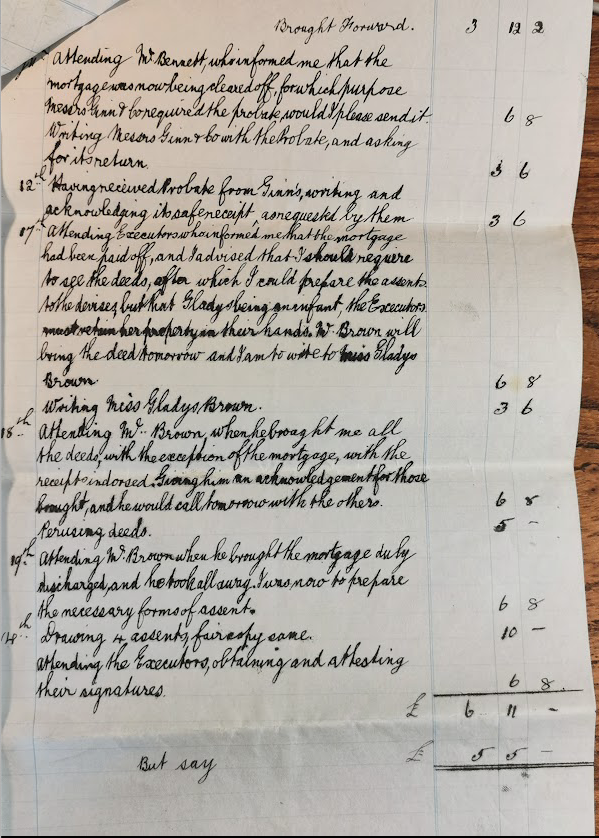 Brought Forward. 3 12 2
Attending Mr Bennett, who informed me that the
mortgage was now being cleared off, for which purpose
Messrs Ginn & Co required the probate, would I please send it. 6 8
Writing Messrs Ginn & Co with the Probate, and asking
for its return. 3 6
12th Having received Probate from Ginn's, writing and
acknowledging its safe receipt as requested by them 3 6
17th Attending Executors who informed me that the mortgage
had been paid off, and I advised that I should require
to see the deeds, after which I could prepare the assents
to the devisees, but that Gladys being an infant, the Executors
must retain her property in their hands. Mr Brown will
bring the deed tomorrow and I am to write to Miss Gladys
Brown. 6 8
Writing Miss Gladys Brown. 3 6
18th Attending Mr. Brown, when he brought me all
the deeds, with the exception of the mortgage, with the
receipt indorsed. Giving him an acknowledgement for those
brought, and he would call tomorrow with the others. 6 8
Perusing deeds. 5 -
19th Attending Mr. Brown when he brought the mortgage duly
discharged, and he took all away. I was now to prepare
the necessary forms of assent. 6 8
Drawing 4 assents, fair copy same. 10 -
Attending the Executors, obtaining and attesting
their signatures. 6 8.
£ 6 11 -
But say £ 5 5 -